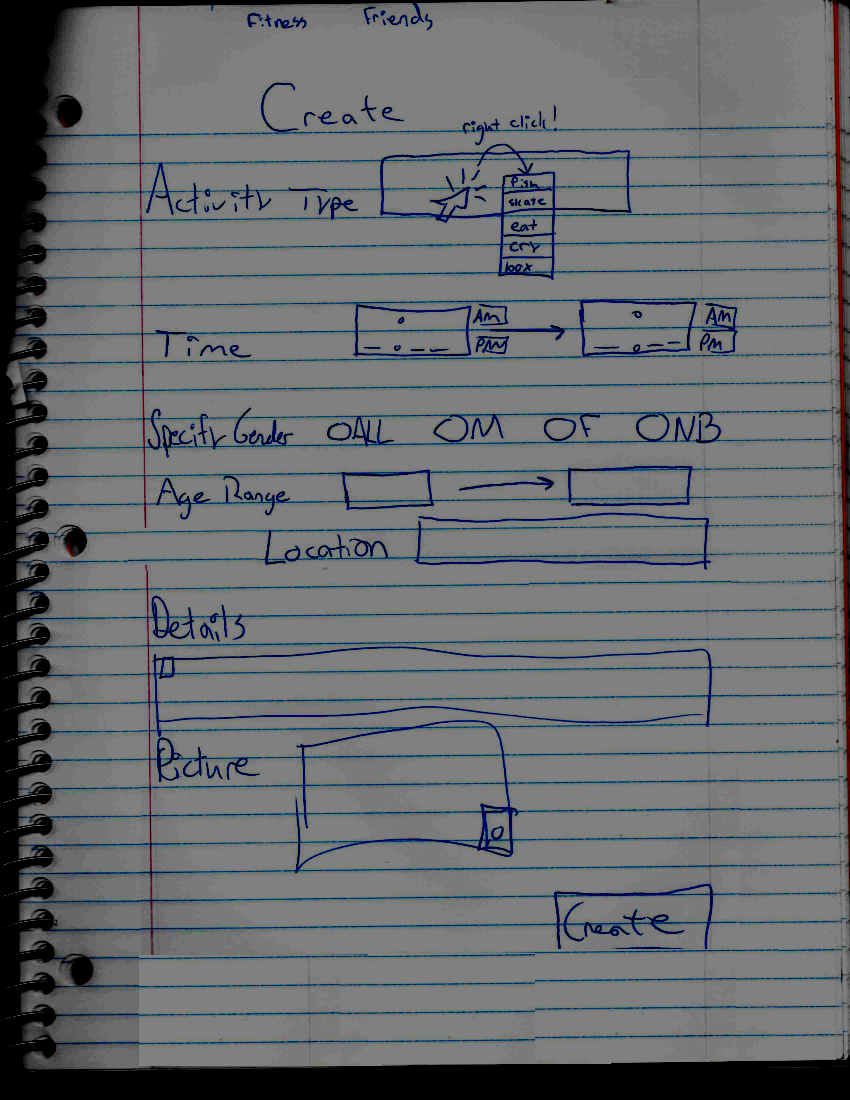 Fitness Friends
Create
right click!
Activity Type
Fish
skate
eat
cry
box
Time AM PM AM PM
Specify Gender ALL M F NB
Age Range
Location
Details
Picture
Create